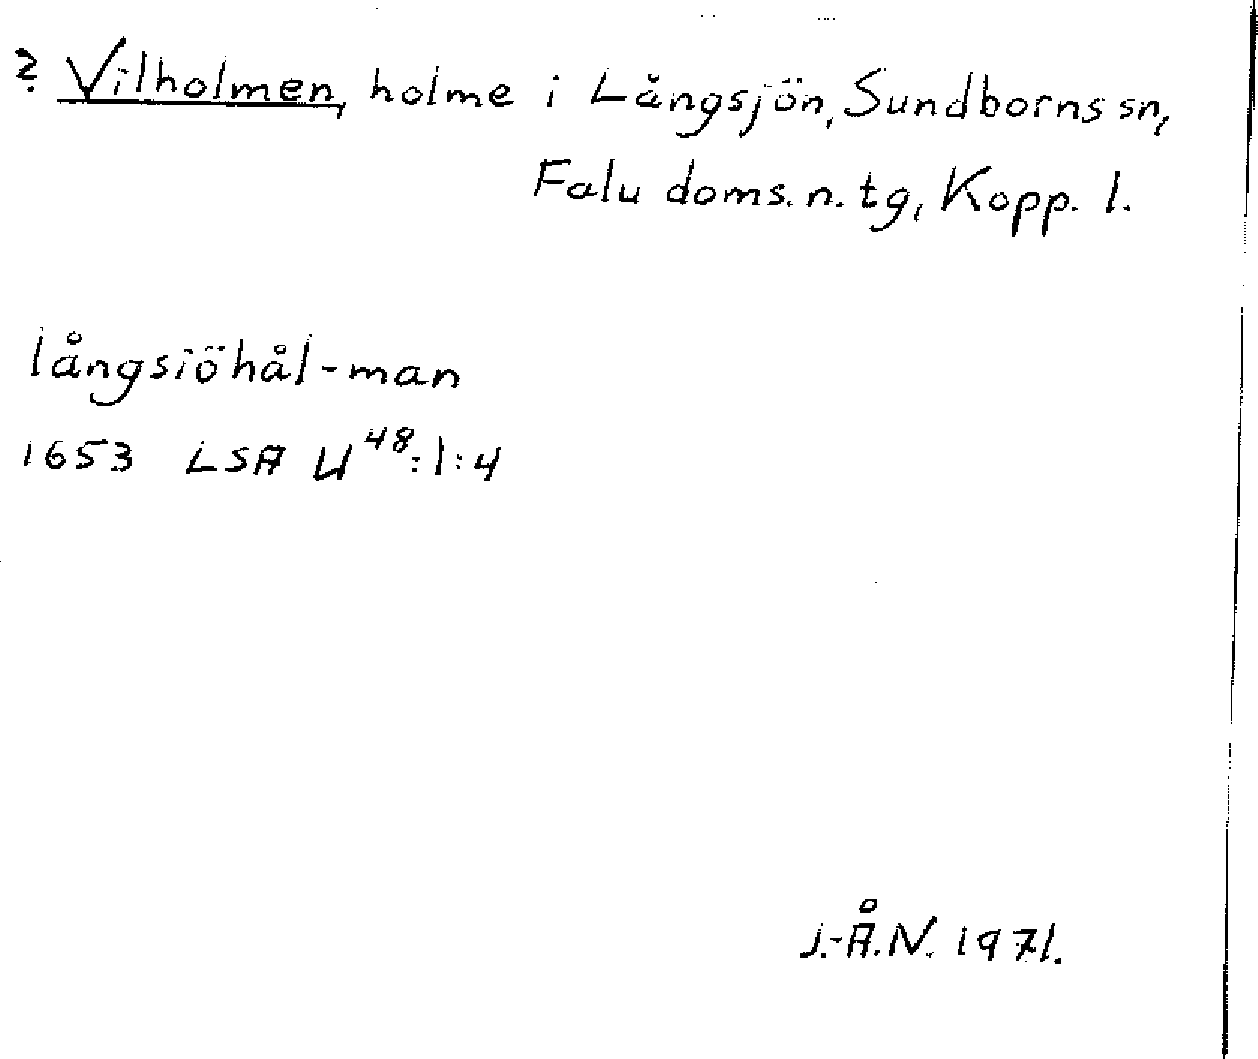 ? Vilholmen, holme i Långsjön, Sundborns sn,
Falu doms. n. tg, Kopp. l.
långsiöhål-man
1653 LSA U 48:1:4
J.-Å.N. 1971.